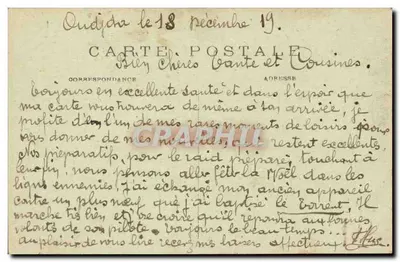 Oudjda le 18 Décembre 19.
CARTE POSTALE
Bien chères tante et Cousines.
CORRESPONDANCE ADRESSE
Toujours en excellente santé et dans l'espoir que
ma carte vous trouvera de même à son arrivée, je
profite d'en l'un de mes rares moments de loisirs pour
vous donner de mes nouvelles, qui restent excellentes.
Nos préparatifs, pour le raid préparé, touchent à
leur fin, nous pensons aller fêter la Noël dans les
lignes ennemies. J'ai échangé mon ancien appareil
contre un plus neuf que j'ai baptisé le Torrent, Il
marche très bien et
croire qu'il répondra aux bonnes
volontés de son pilote. Toujours le beau temps...
au plaisir de vous lire recevez mes baisers affectueux